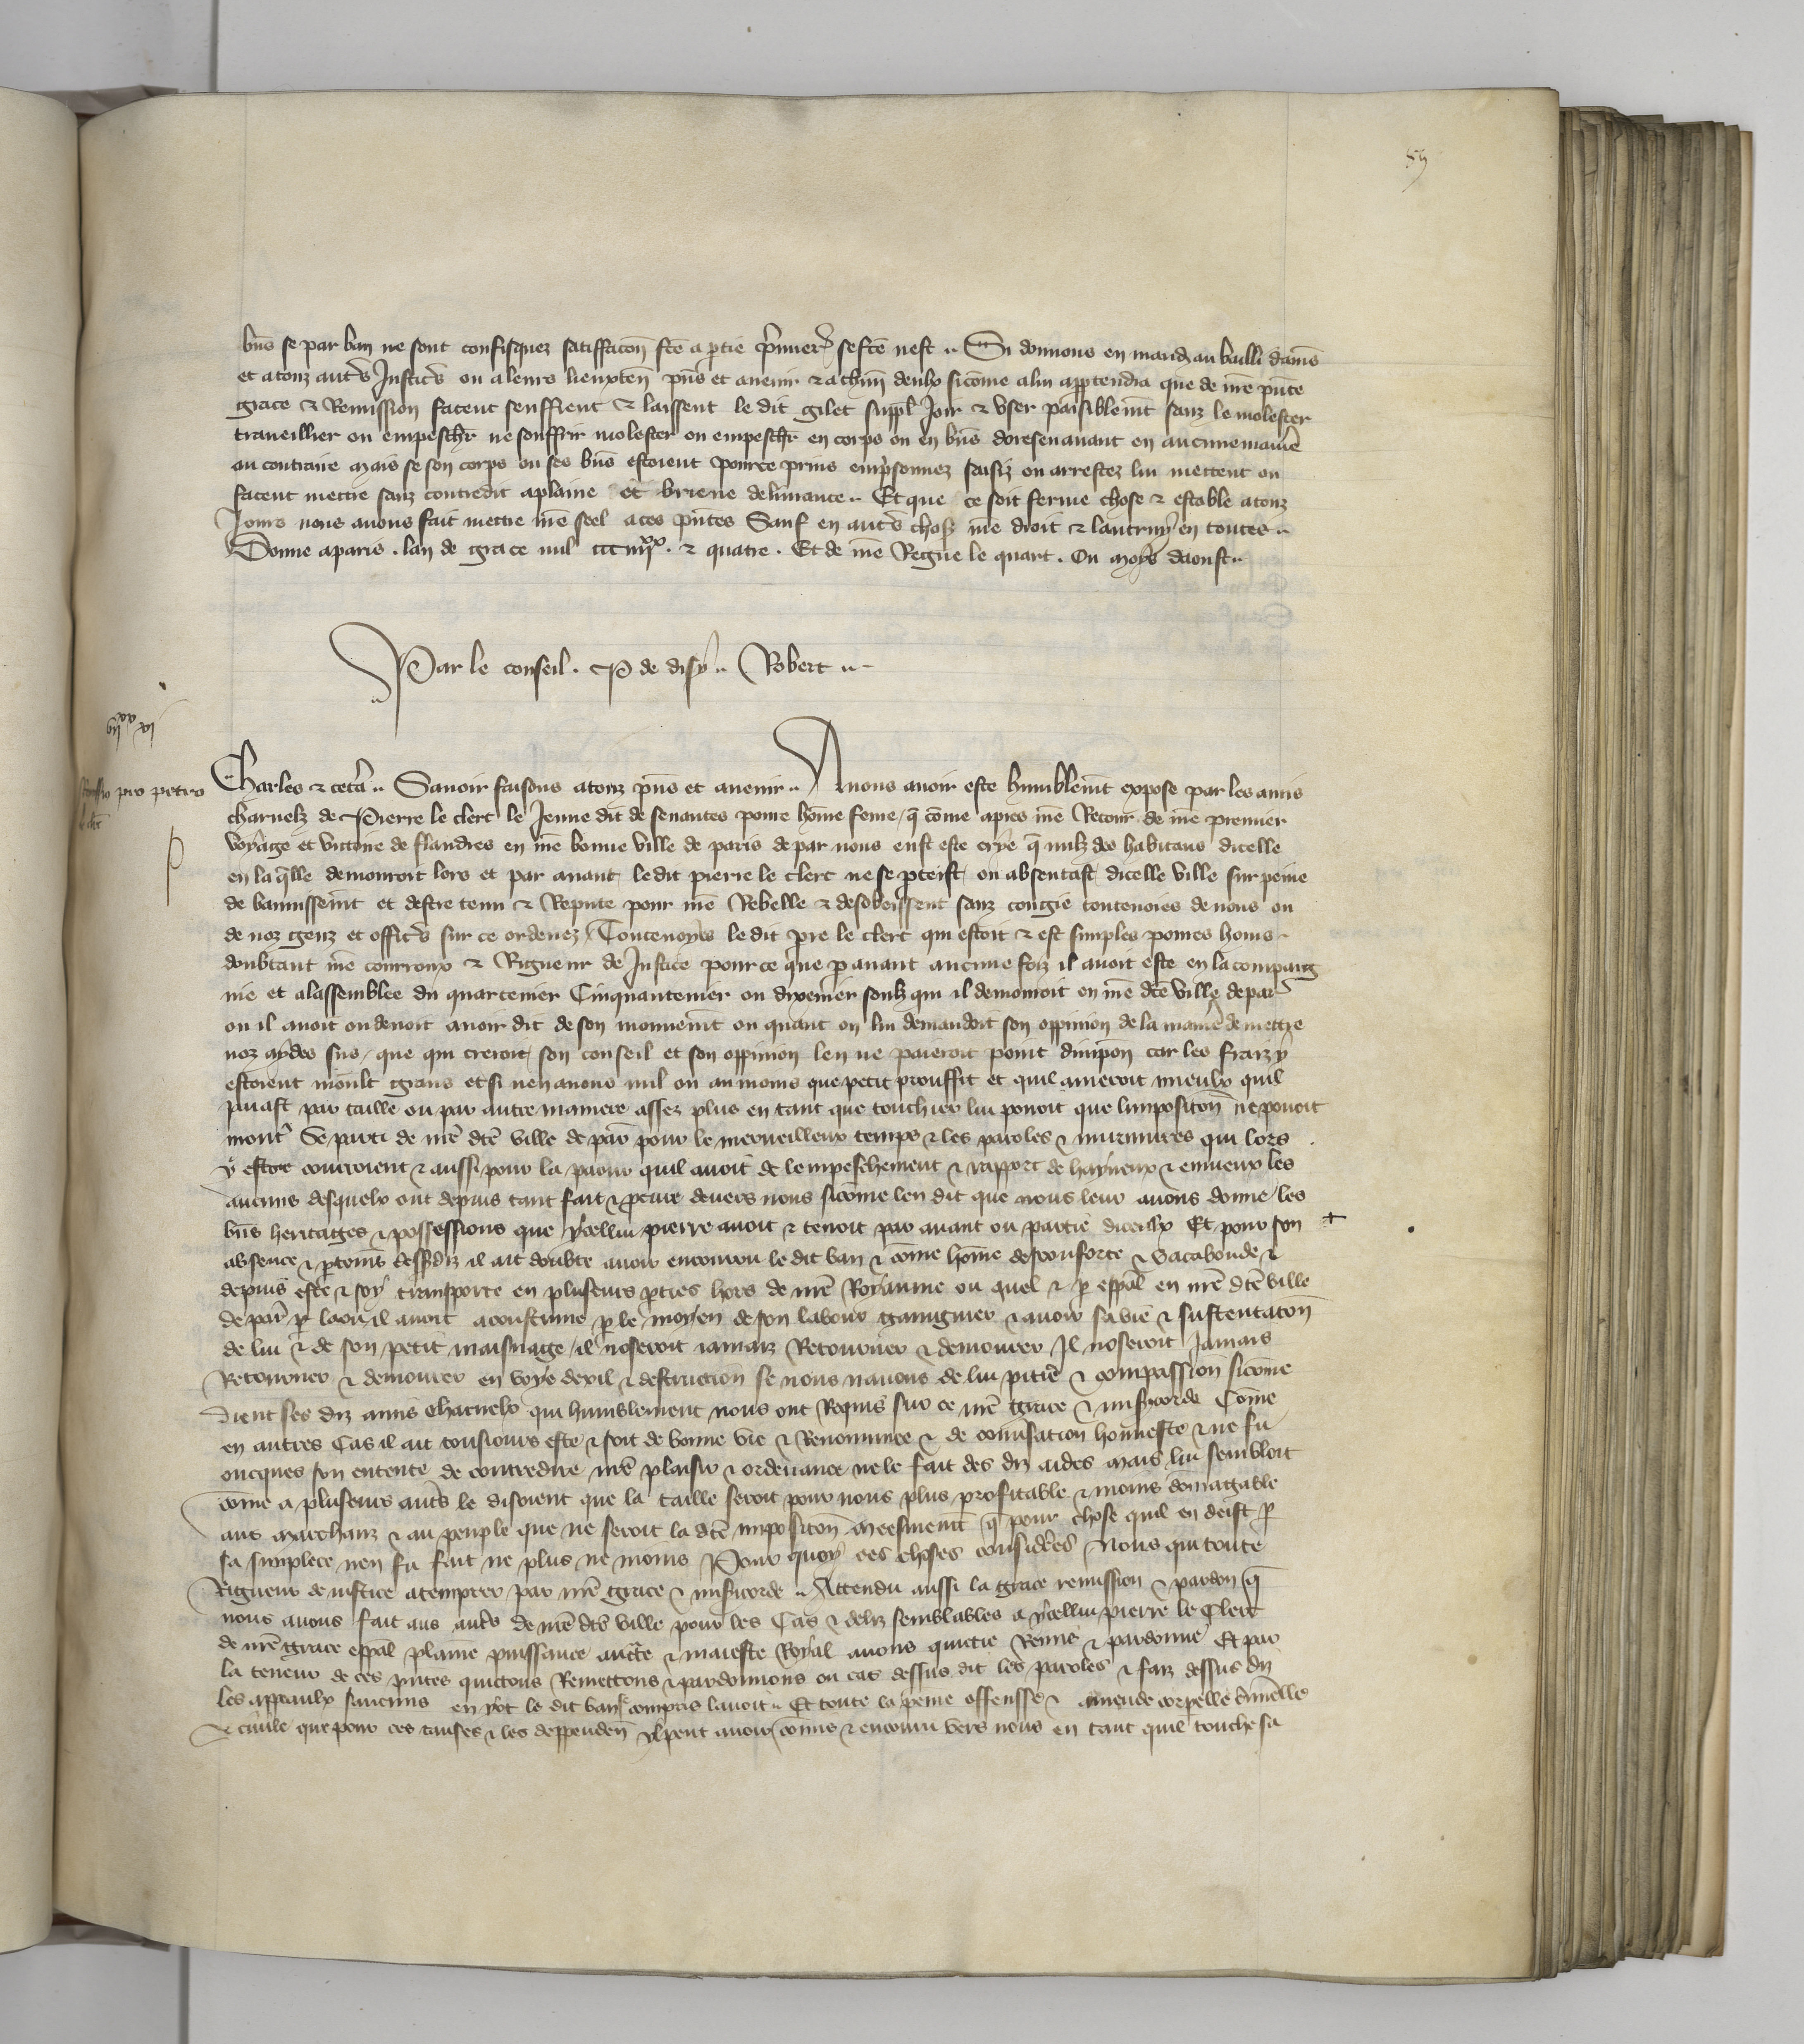 bns se par ban ne sont confisquez satiffacon fce a ptie primier se fce nest .. Si donnons en mand au bailli damis
et atouz autrs Justicrs ou a leurs lieuxten pns et avenir & achun deulx sicome alui apptendra que de nre pnte
grace & Remission facent seuffrent & laissent le dit gilet suppl Joir & user paisiblemt sanz le molester
traveillier ou empeschr ne souffrir molester ou empeschr en corps ou en bns doresenavant en aucune manie
au contraire Mais se son corps ou ses bns estoient pource prins emprisonnez saisiz ou arrestez lui mettent ou
facent mettre sanz contredit aplaine et brieve delivrance .. Et que ce soit ferme chose & estable atouz
Jours nous avons fait mettre nre seel aces pntes Sauf en autrs choses nre droit & lautruy en toutes ..
Donne aparis . lan de grace mil ccc iiijxx . & quatre . Et de nre Regne le quart . Ou moys daoust ..
Par le conseil . P de disy .. Robert ..
vijxx xvj
Remissio pro petro
le clerc
Charles & cetera .. Savoir faisons atouz pns et avenir .. A nous avoir este humblemt expose par les amis
charnelz de Pierre le clerc le Jeune dit de senantes povre home feme / q come apres nre Retour de nre premier
voyage et victoire de flandres en nre bonne ville de paris depar nous eust este crye q nulz des habitans dicelle
en laqlle demouroit lors et par avant ledit pierre le clerc ne se pteist ou absentast dicelle ville sur peine
de bannissemt et destre tenu & Repute pour nre Rebelle & desobeissent sanz congie toutevoies de nous ou
de noz genz et officrs sur ce ordenez / Toutevoyes le dit pre le clerc qui estoit & est simples povres homs ..
doubtant nre courroux & Rigueur de Justice pource que pavant aucune foiz il avoit este en la compaig
nie et alassemblee du quartenier Cinquantenier ou dixenier soubz qui il demouroit en nre dce ville depar
ou il avoit ou devoit avoir dit de son mouvemt ou quant on lui demandoit son oppinion de la manie de mettre
noz aydes sus / que qui creroit son conseil et son oppinion len ne paieroit point dimpon car les fraiz y
estoient moult grans et si nen avons nul ou au moins que petit prouffit et quil ameroit mieulx quil
paiast par taille ou par autre maniere assez plus en tant que touchier lui povoit que limpositon ne povoit
montr Se parti de nre dce ville de par pour le merveilleux temps & les paroles & murmures qui lors
y estoit couroient & aussi pour la paour quil avoit de lempeschement & rapport de hayneux & envieux les
aucuns desquelx ont depuis tant fait & pcure devers nous sicome len dit que nous leur avons donne / les
bns heritages & possessions que ycellui pierre avoit & tenoit par avant ou partie diceulx Et pour son +
absence & ptemt dessusdiz il ait doubte avoir encouru le dit ban & come home desconforte & vacabonde &
depuis este & soy transporte en pluseurs pties hors de nre Royaume ou quel & p espal en nre dce ville
de par p laou il avoit acoustume p le moyen de son labour gaingnier & avoir sa vie & sustentaton
de lui & de son petit maisnage / il noseroit jamaiz Retourner & demourer Il noseroit Jamais
Retourner & demourer en voye dexil & destruction se nous navons de lui pitie & compassion sicome
dient ses diz amis charnelx qui humblement nous ont Requis sur ce nre grace & misericorde Come
en autres Cas il ait tousiours este & soit de bonne vie & Renommee & de conversation honneste & ne fu
oncques son entente de contredire nre plaisir & ordenance ne le fait des diz aides mais lui sembloit
come a pluseurs autrs le disoient que la taille seroit pour nous plus profitable & moins domagable
aus marchanz & au peuple que ne seroit la dce impositon Meesmemt q pour chose quil en deist p
sa simplece nen fu fait ne plus ne moins Pour quoy ces choses considerees Nous qui toute
Rigueur de justice atemprer par nre grace & misericorde .. Attendu aussi la grace remission & pardon q
nous avons fait aus autrs de nre dce ville pour les Cas & deliz semblables a ycellui pierre le Clerc
de nre grace espal plaine puissance aucte & maieste Royal avons quictie Remis & pardonne Et par
la teneur de ces pntes quictons Remettons & pardonnons ou cas dessus dit les paroles & faiz dessus diz
les appeaulx saucuns en yot le dit ban & compris lavoit .. Et toute la peine offensse & amende corpelle criminelle
& civile que pour ces causes & les deppenden yl peut avoir comis & encouru vers nous en tant quil touche sa